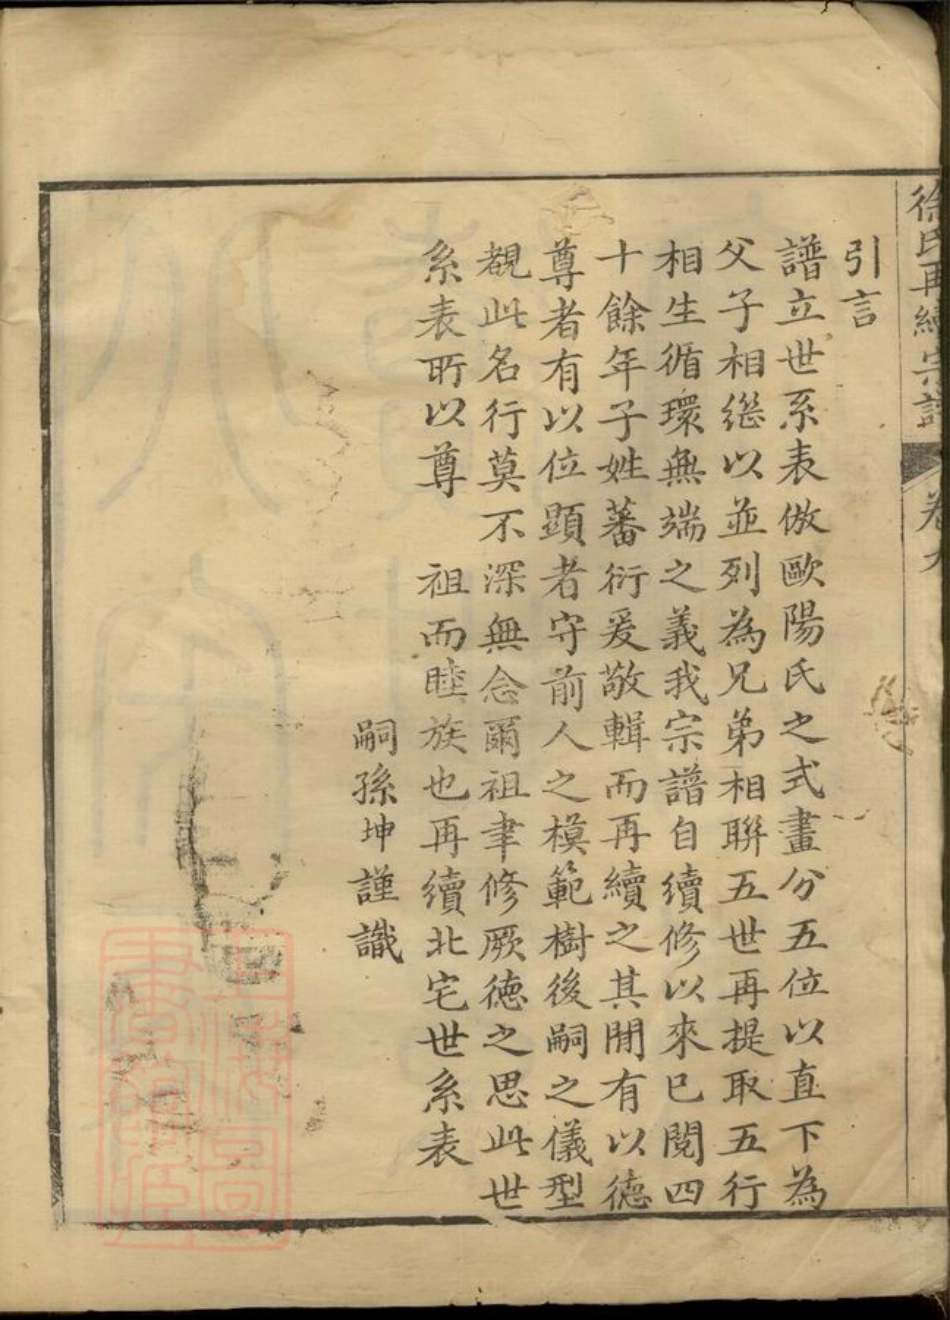 徐氏再續宗譜
卷九
引言
譜立世系表倣歐陽氏之式畫分五位以直下為
父子相繼以並列為兄弟相聯五世再提取五行
相生循環無端之義我宗譜自續修以來已閱四
十餘年子姓蕃衍爰敬輯而再續之其閒有以德
尊者有以位顯者守前人之模範樹後嗣之儀型
覩此名行莫不深無念爾祖聿修厥德之思此世
系表所以尊　祖而睦族也再續北宅世系表
嗣孫坤謹識
上海圖書館藏